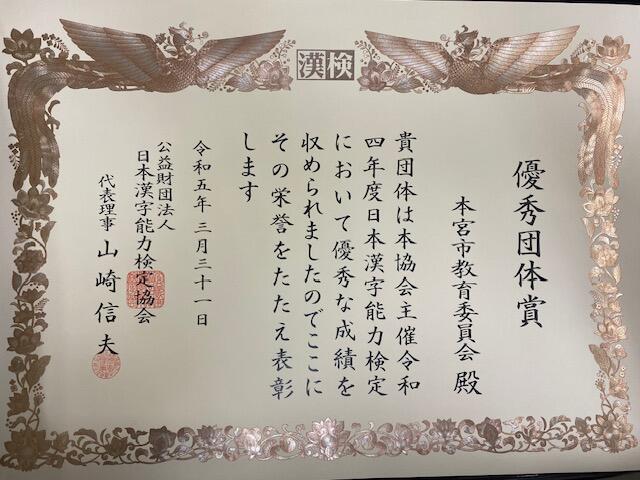 漢検
優秀団体賞
本宮市教育委員会 殿
貴団体は本協会主催令和
四年度日本漢字能力検定
において優秀な成績を
収められましたのでここに
その栄誉をたたえ表彰
します
令和五年三月三十一日
公益財団法人
日本漢字能力検定協会
代表理事 山崎信夫